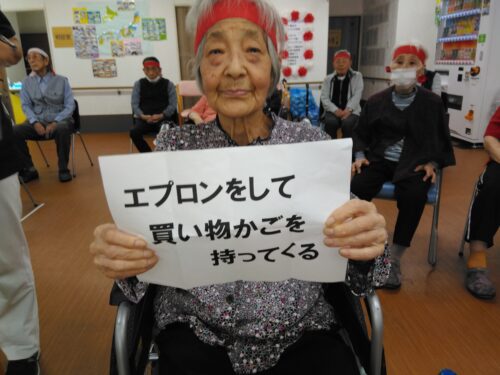 エプロンをして
買い物かごを
持ってくる